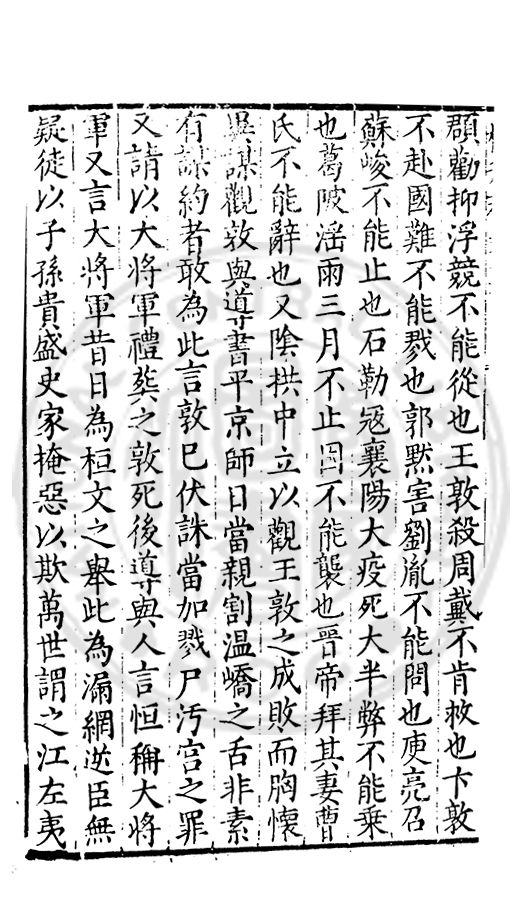 顗勸抑浮競不能從也王敦殺周戴不肯救也卞敦
不赴國難不能戮也郭默害劉胤不能問也庾亮召
蘇峻不能止也石勒冦襄陽大疫死大半弊不能乗
也葛陂滛雨三月不止困不能襲也晉帝拜其妻曹
氏不能辭也又陰拱中立以觀王敦之成敗而胸懷
異謀觀敦與導書平京師日當親割温嶠之舌非素
有謀約者敢為此言敦巳伏誅當加戮尸汚宫之罪
又請以大將軍禮葬之敦死後導與人言恒稱大將
軍又言大將軍昔日為桓文之舉此為漏網逆臣無
疑徒以子孫貴盛史家掩惡以欺萬世謂之江左夷